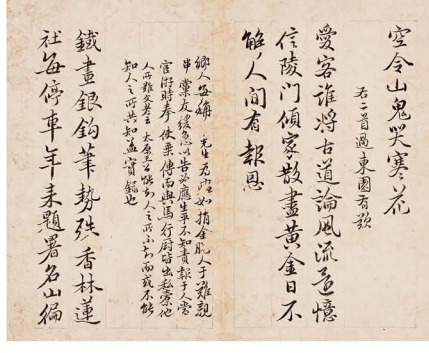 空令山鬼哭寒花
右二首過東園有歎
愛客誰將古道論風流還憶
信陵門傾家散盡黃金日不
解人間有報恩
鄉人每稱先生君臨如捐金脫人于難親
串黨友緩急以告必應生平不知責報于人嘗
官游時奉使乘傳而輿馬行廚皆出私橐他
人所難文若王太原
人之所不知而或不能
知人之所共知蓋實錄也
鐵畫銀鉤筆勢殊香林蓮
社每停車年來題署名山徧